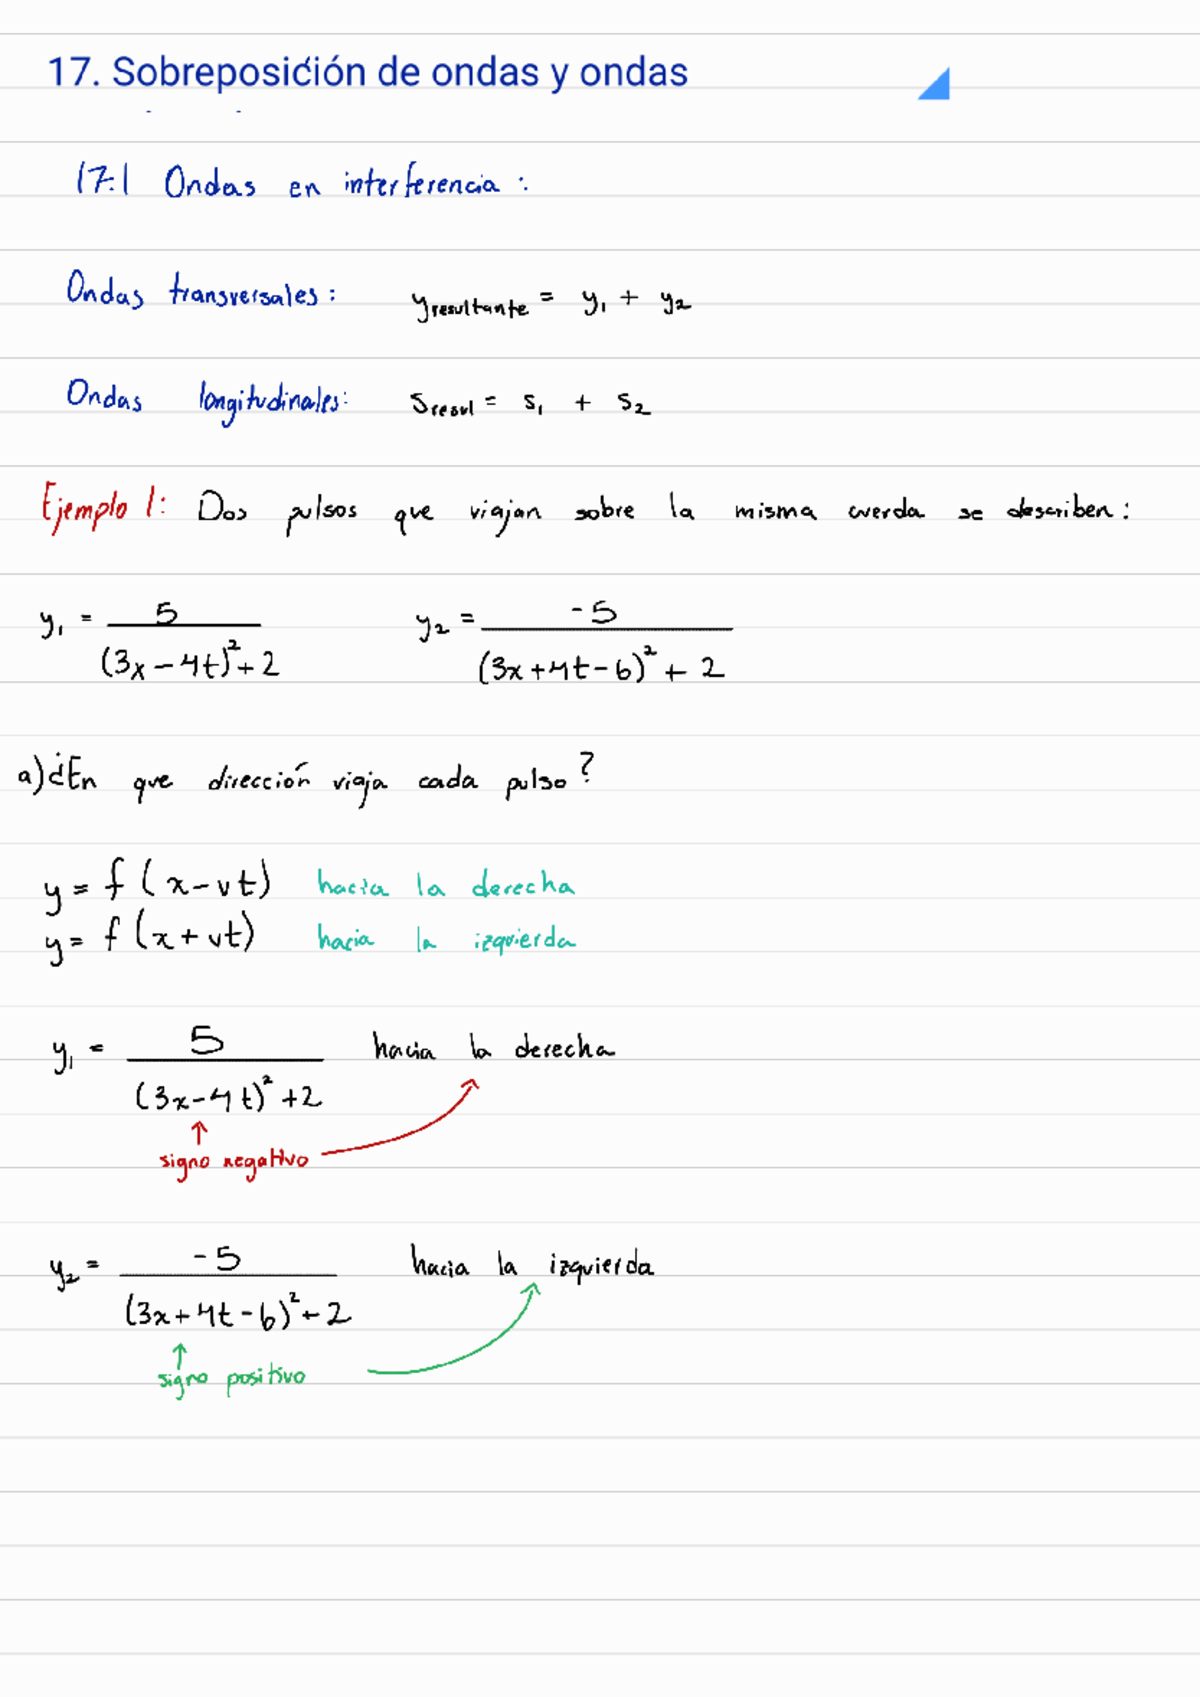 17. Sobreposición de ondas y ondas
17.1 Ondas en interferencia :
Ondas transversales: y resultante = y₁ + y₂
Ondas longitudinales: s resul = s₁ + s₂
Ejemplo 1: Dos pulsos que viajan sobre la misma cuerda se describen:
y₁ = 5 / ((3x - 4t)² + 2) y₂ = -5 / ((3x + 4t - 6)² + 2)
a) ¿En que dirección viaja cada pulso?
y = f (x - vt) hacia la derecha
y = f (x + vt) hacia la izquierda
y₁ = 5 / ((3x - 4t)² + 2) hacia la derecha
↑
signo negativo
y₂ = -5 / ((3x + 4t - 6)² + 2) hacia la izquierda
↑
signo positivo